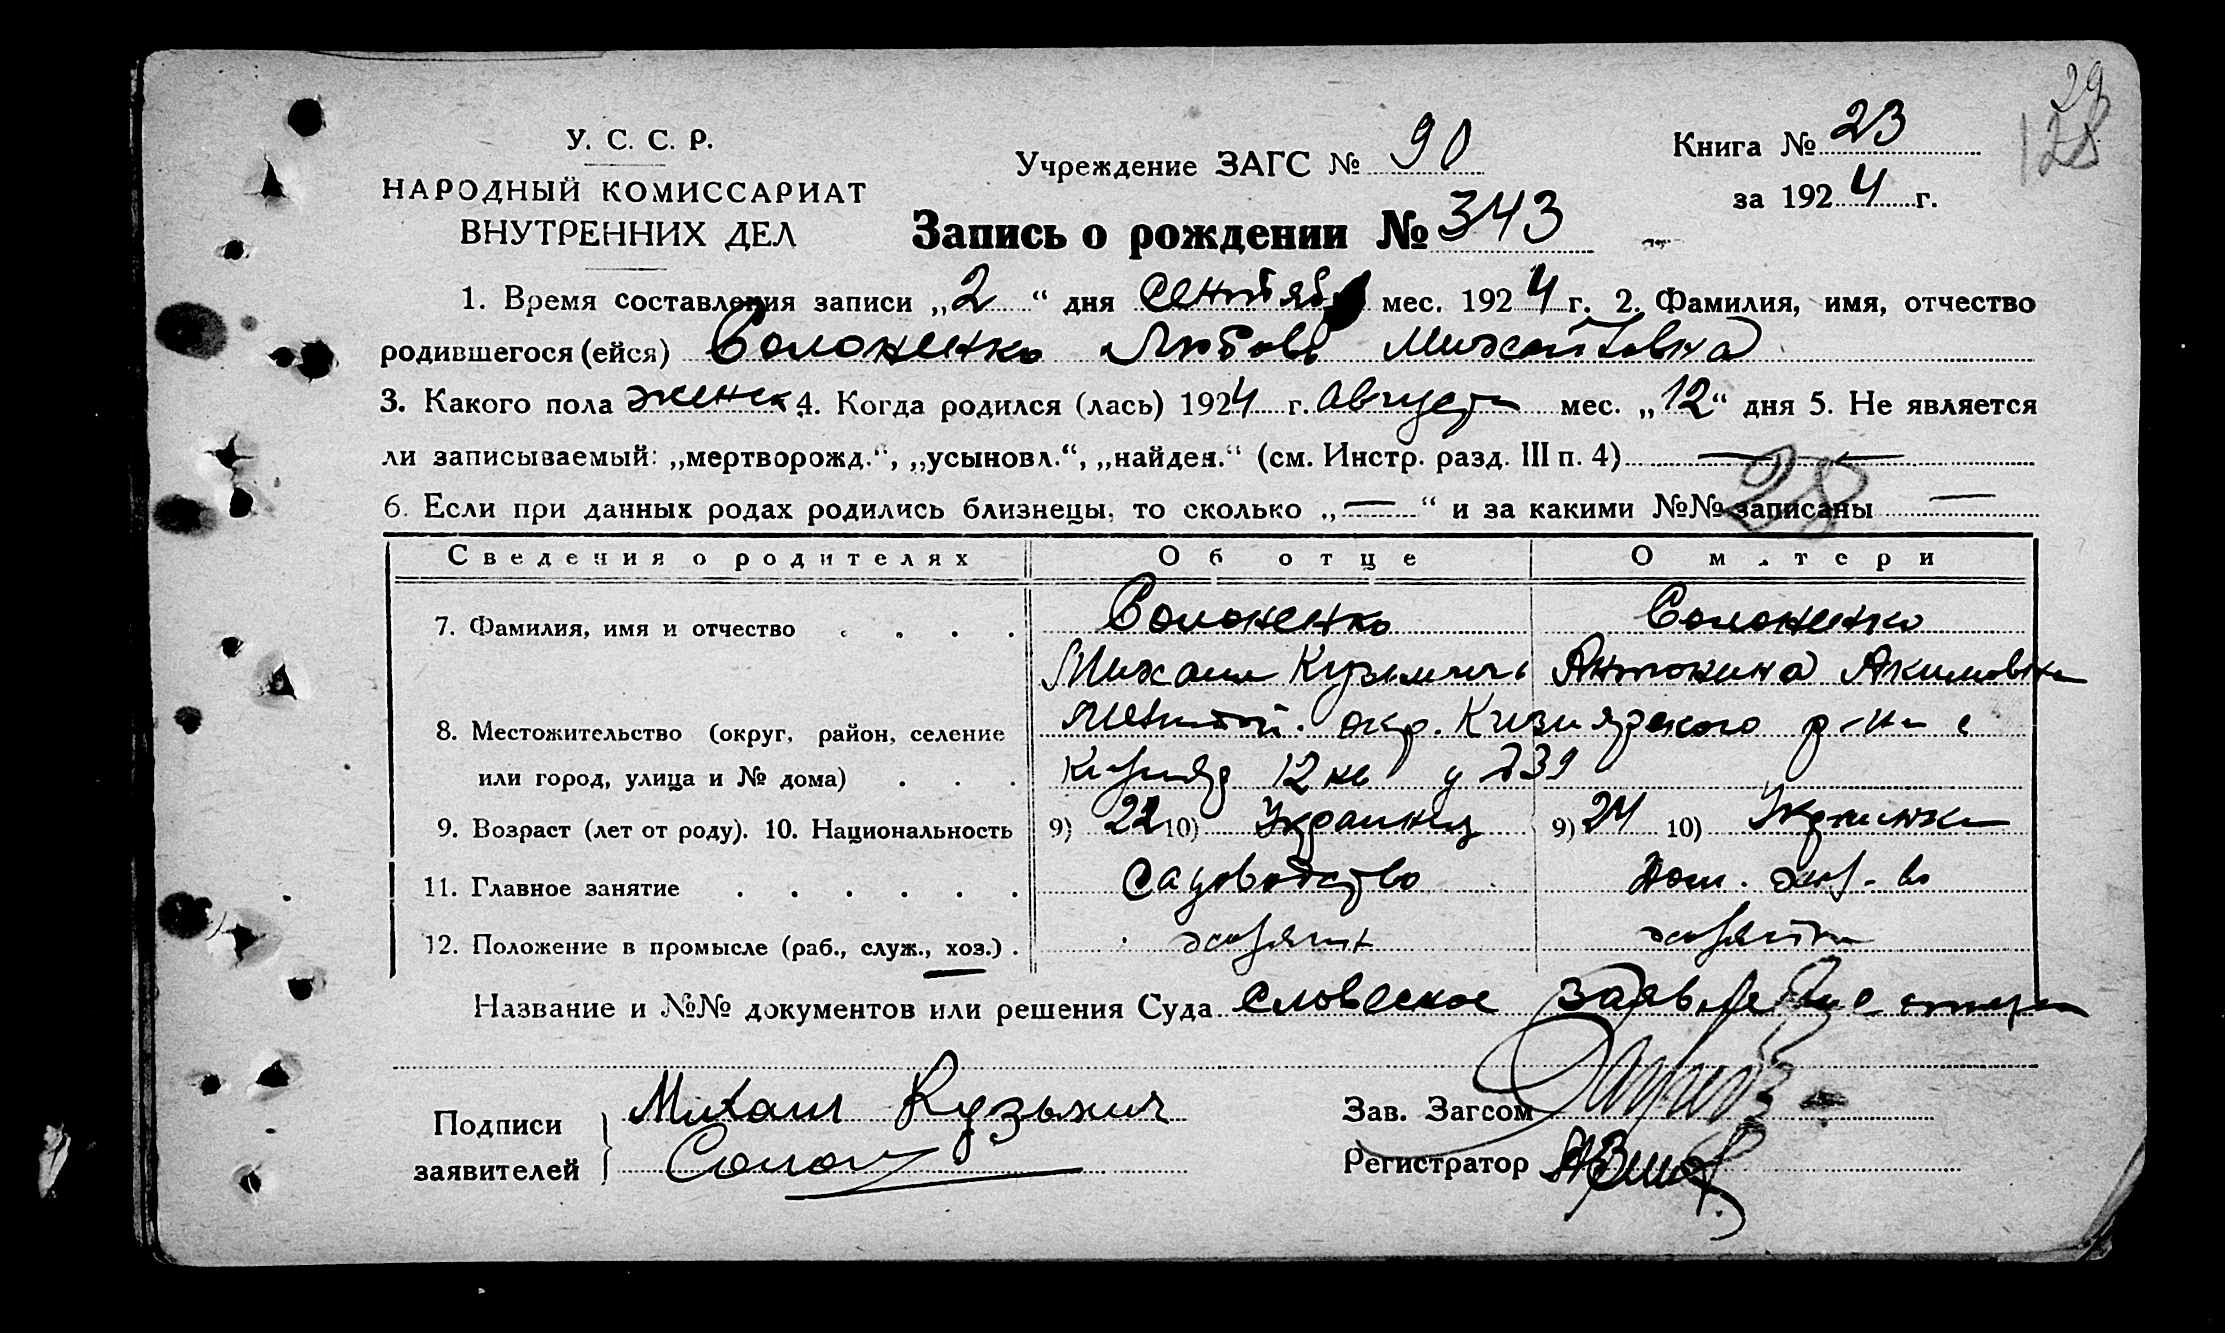 29
128
У. С. С. Р.
НАРОДНЫЙ КОМИССАРИАТ
ВНУТРЕННИХ ДЕЛ
Учреждение ЗАГС № 90
Книга № 23
за 1924 г.
Запись о рождении № 343
1. Время составления записи „2“ дня сентябр мес. 1924 г. 2. Фамилия, имя, отчество
родившегося (ейся) Солоненко Любовь Михайловна
3. Какого пола женск 4. Когда родился (лась) 1924 г. августа мес. „12“ дня 5. Не является
ли записываемый: „мертворожд.“, „усыновл.“, „найден.“ (см. Инстр. разд. III п. 4) —
28
6. Если при данных родах родились близнецы, то сколько „—“ и за какими №№ записаны —
Сведения о родителях Об отце О матери
7. Фамилия, имя и отчество Солоненко Солоненко
Михаил Кузьмичь Антонина Акимовна
8. Местожительство (округ, район, селение Мелитоп. окр. Кизиярского р-на с
или город, улица и № дома) Кизияр 12 кв д 239
9. Возраст (лет от роду). 10. Национальность 9) 22 10) Украинец 9) 24 10) Украинка
11. Главное занятие Садоводство Дом. хоз-во
12. Положение в промысле (раб., служ., хоз.) хозяин хозяйка
Название и №№ документов или решения Суда словеское заявление отца
Подписи заявителей Михаил Кузьмич
Солон
Зав. Загсом
Регистратор